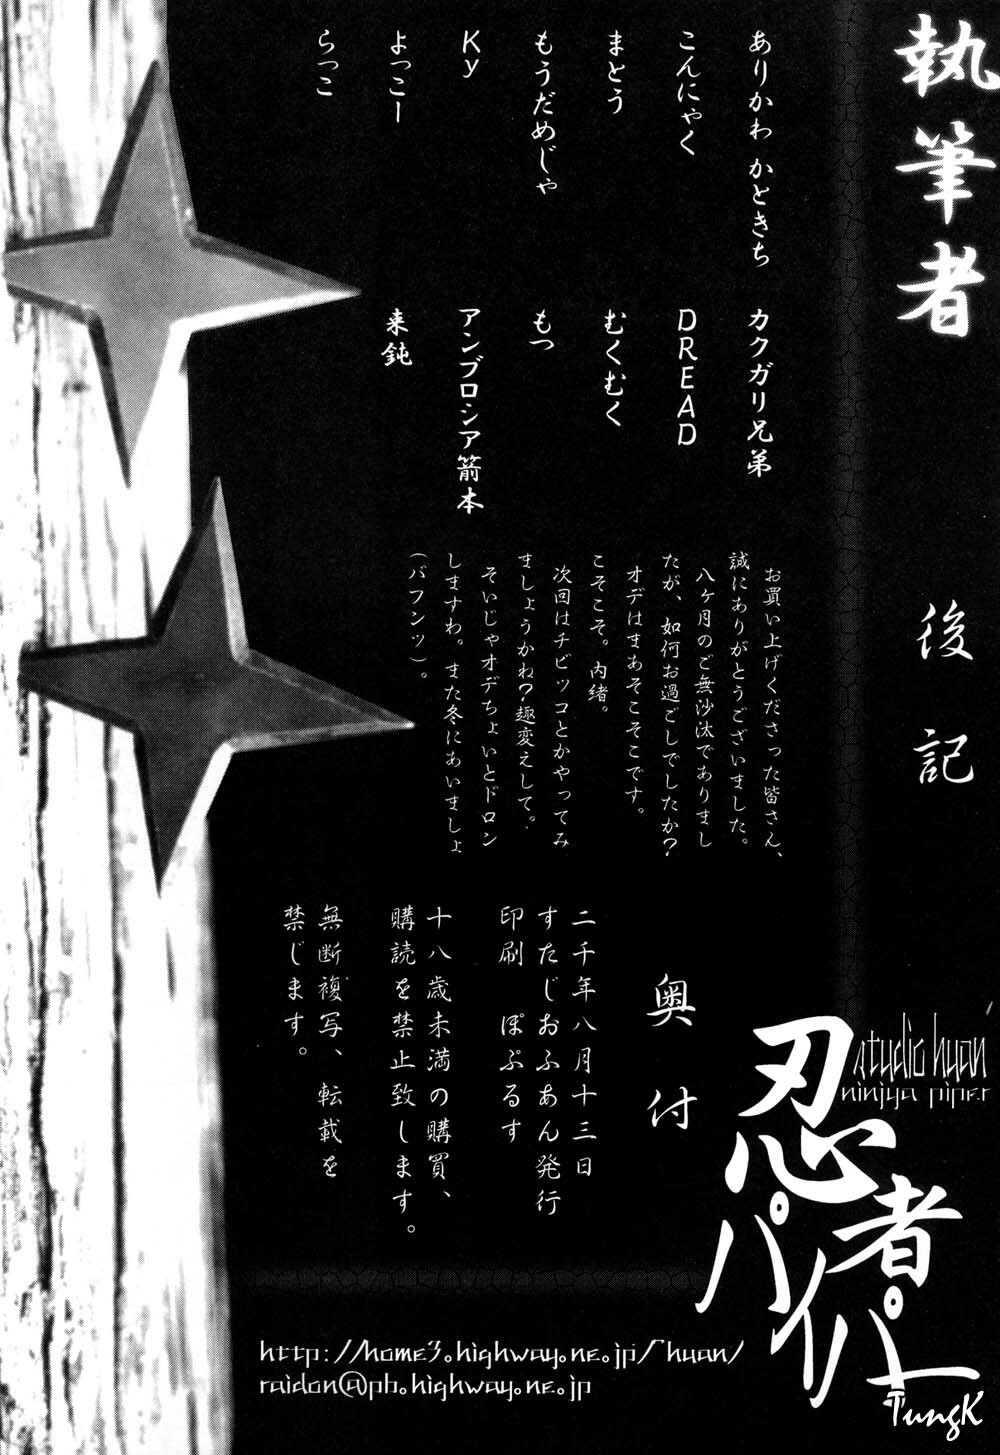 執筆者
ありかわ かときち
こんにゃく
まとう
もうだめじゃ
Ky
よっこー
らっこ
カクガリ兄弟
DREAD
むくむく
もつ
アンブロシア箭本
来鈍
後記
お買い上げくださった皆さん、
誠にありがとうございました。
八ヶ月のご無沙汰でありまし
たが、如何お過ごしでしたか?
オデはまあそこそこです。
こそこそ。内緒。
次回はチビッコとかやってみ
ましょうかね?趣変えして。
そいじゃオデちょいとドロン
しますわ。また冬にあいましょ
(バフンッ)。
奥付
二千年八月十三日
すたじおふあん発行
印刷 ぽぷるす
十八歳未満の購買、
購読を禁止致します。
無断複写、転載を
禁じます。
studio huan
ninjya piper
忍者
パイパー
http://home3.highway.ne.jp/~huan/
raidon@pb.highway.ne.jp
TungK